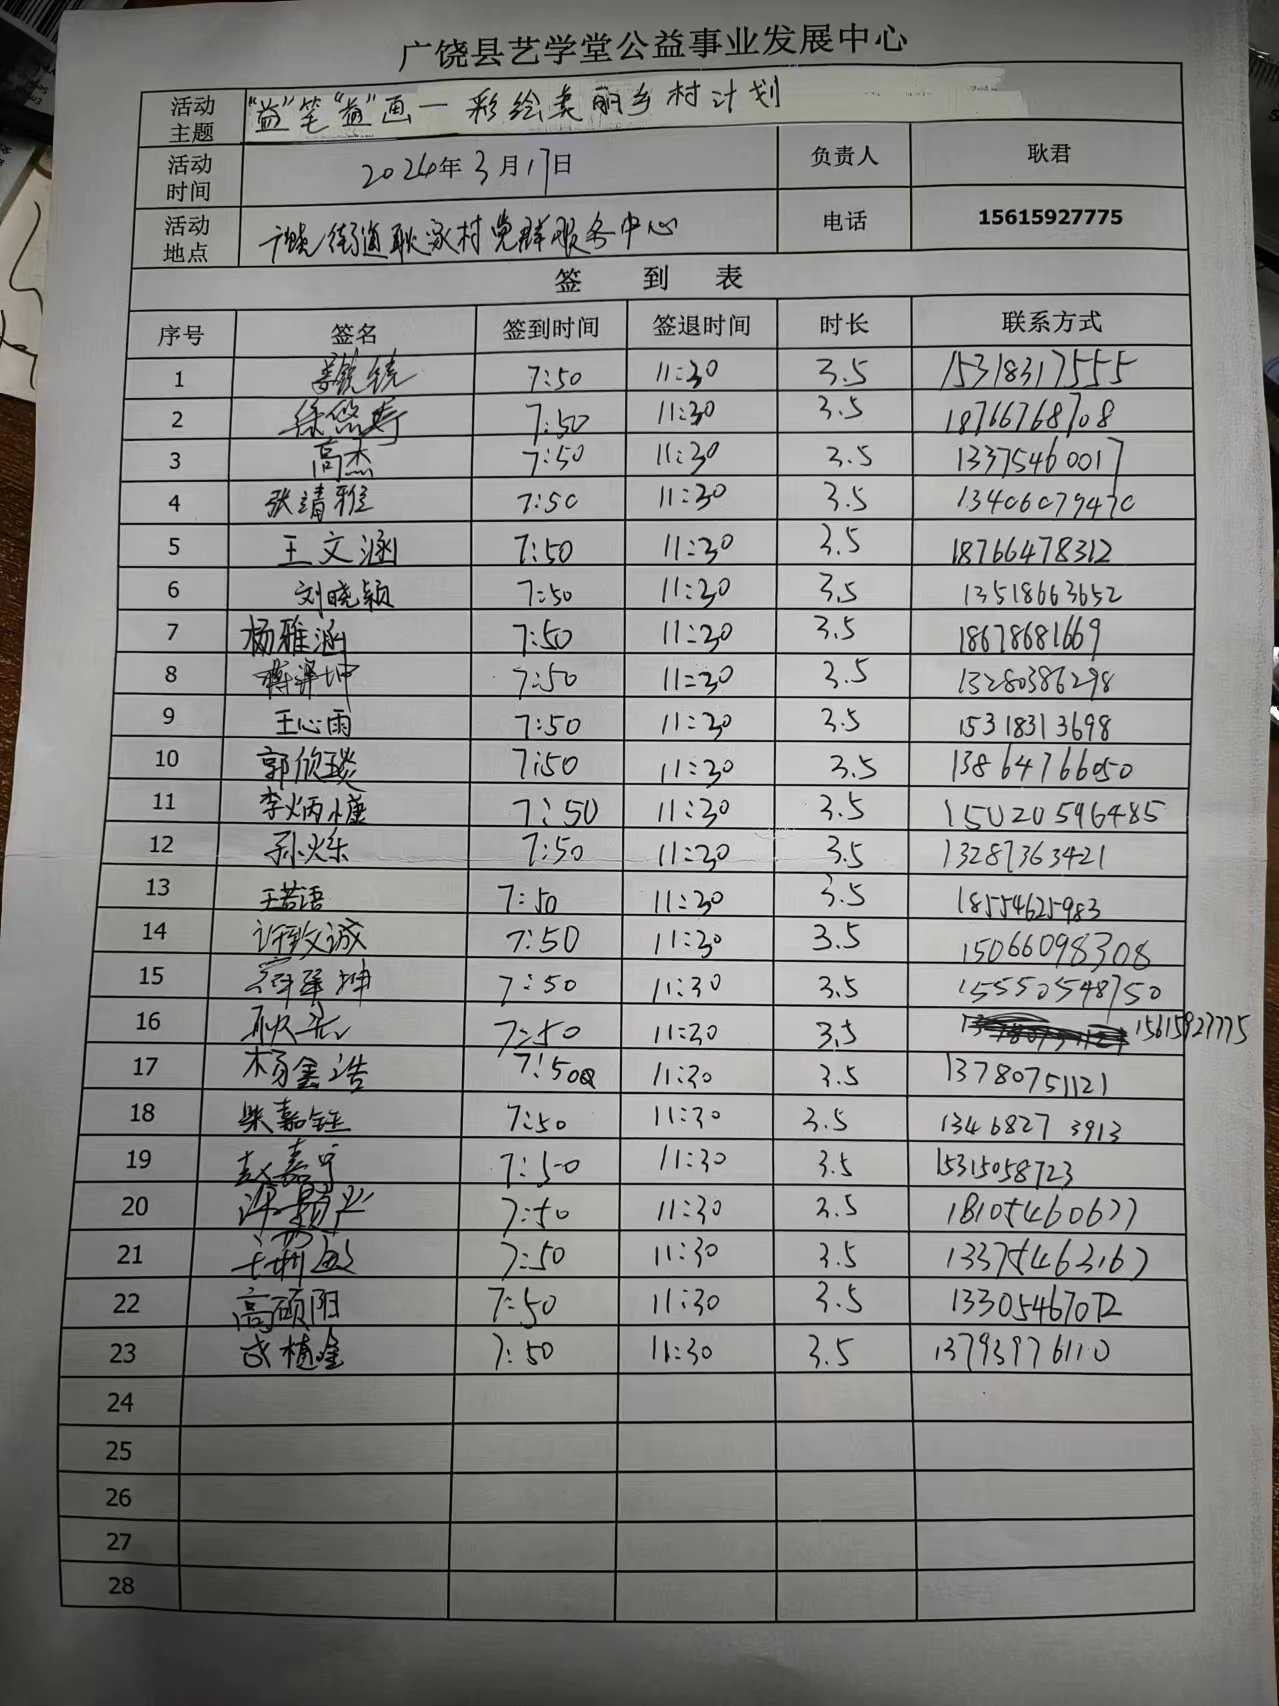 广饶县艺学堂公益事业发展中心
活动主题 "益"笔"益"画一彩绘美丽乡村计划
活动时间 2024年3月17日 负责人 耿君
活动地点 广饶街道耿家村党群服务中心 电话 15615927775
签 到 表
序号 签名 签到时间 签退时间 时长 联系方式
1 7:50 11:30 3.5 15318317555
2 徐悠寿 7:50 11:30 3.5 18766768708
3 高杰 7:50 11:30 3.5 13375460017
4 张靖雅 7:50 11:30 3.5 13406079470
5 王文涵 7:50 11:30 3.5 18766478312
6 刘晓颖 7:50 11:30 3.5 13518663652
7 杨雅涵 7:50 11:30 3.5 18678681669
8 7:50 11:30 3.5 13280386298
9 王心雨 7:50 11:30 3.5 15318313698
10 郭欣琰 7:50 11:30 3.5 13864766050
11 李炳慷 7:50 11:30 3.5 15020596485
12 孙烁 7:50 11:30 3.5 13287363421
13 王若语 7:50 11:30 3.5 18554625983
14 许致诚 7:50 11:30 3.5 15066098308
15 7:50 11:30 3.5 15550548750
16 耿君 7:50 11:30 3.5 15615927775
17 杨鑫浩 7:50 11:30 3.5 13780751121
18 柴嘉钰 7:50 11:30 3.5 13468273913
19 赵嘉宁 7:50 11:30 3.5 15315058723
20 7:50 11:30 3.5 18105460677
21 7:50 11:30 3.5 13375463167
22 高硕阳 7:50 11:30 3.5 13305467072
23 成植 7:50 11:30 3.5 13793976110
24
25
26
27
28